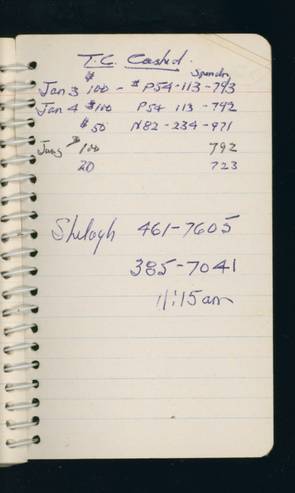 T.C. Cashed.
$ Spendry
Jan 3 100 - # P54-113-793
Jan 4 $100 P54 113-792
$50 N82-234-971
Jan 5 $100 792
20 723
Shelagh 461-7605
385-7041
11:15am